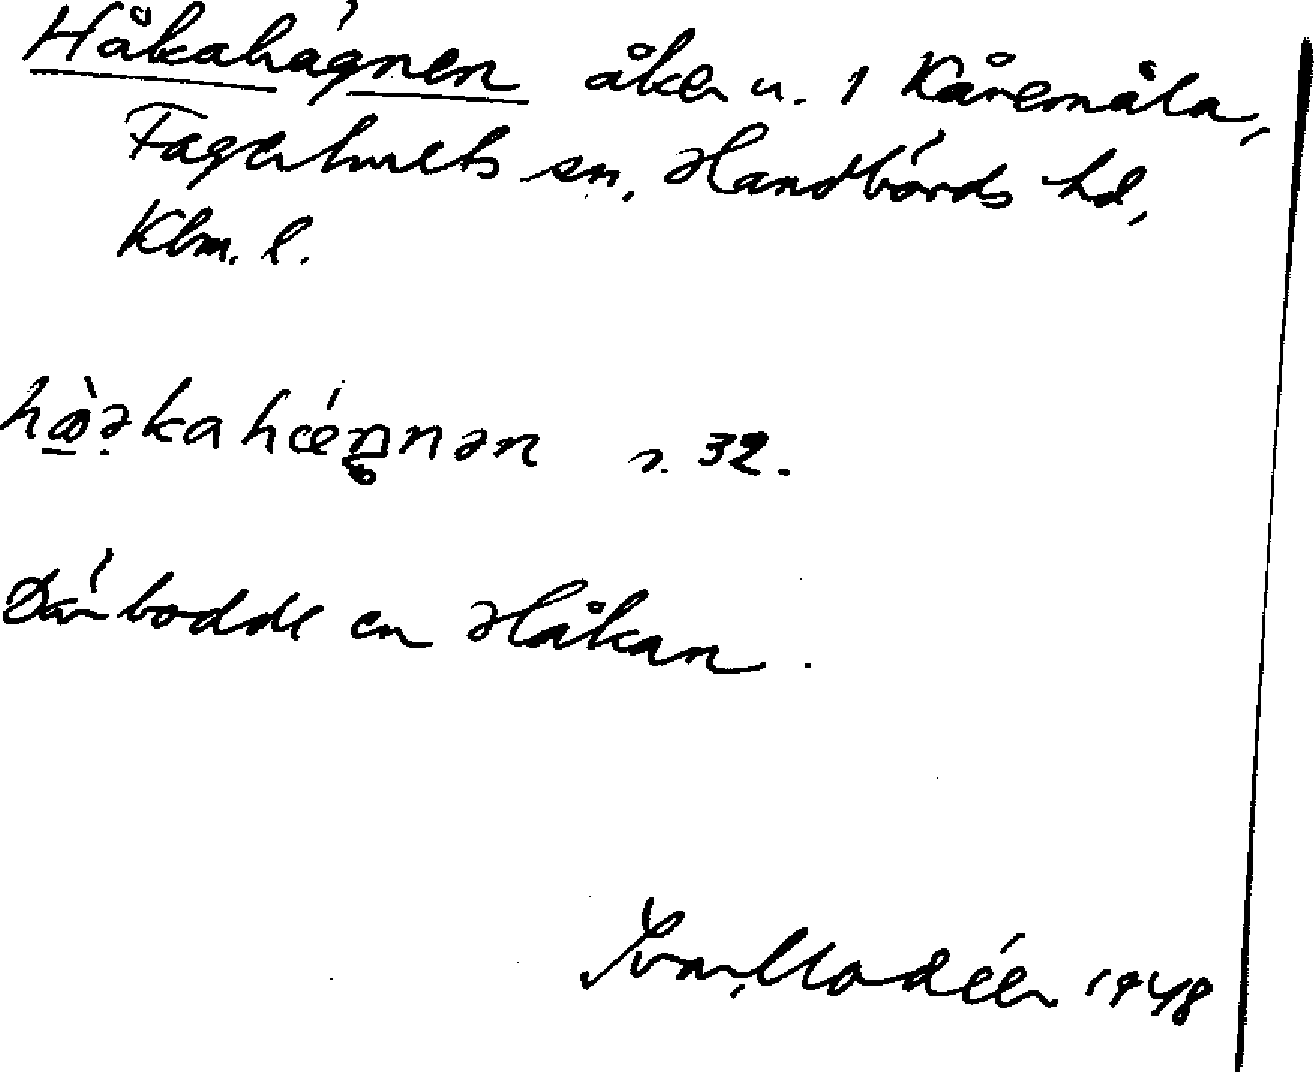 Håkahägnen åker u. 1 Kåremåla,
Fagerhults sn, Handbörds hd,
Klm. l.
s. 32.
Där bodde en Håkan.
Ivar Modéer 1948